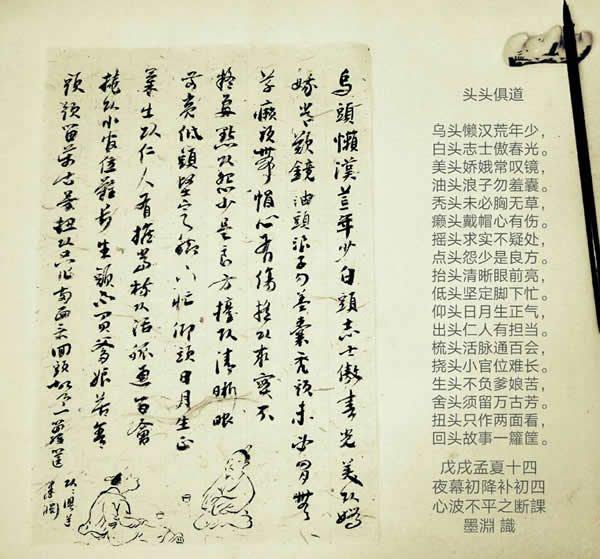 烏頭懶漢荒年少白頭志士傲春光美头嬌
娥常歎鏡油頭浪子勿羞囊禿頭未必胃無
草癩頭帶帽心有傷搖头求實不
疑處點头怨少是良方擡头清晰眼
前亮低頭堅定腳下忙仰頭日月生正
氣出头仁人有擔當梳头活脈通百會
撓头小官位難長生頭不負爹娘苦舍
頭須留萬古芳扭头只作兩面看回頭故事一籮筐
头头俱道
墨淵
头头俱道
乌头懒汉荒年少，
白头志士傲春光。
美头娇娥常叹镜，
油头浪子勿羞囊。
秃头未必胸无草，
癞头戴帽心有伤。
摇头求实不疑处，
点头怨少是良方。
抬头清晰眼前亮，
低头坚定脚下忙。
仰头日月生正气，
出头仁人有担当。
梳头活脉通百会，
挠头小官位难长。
生头不负爹娘苦，
舍头须留万古芳。
扭头只作两面看，
回头故事一籮筐。
戊戌孟夏十四
夜幕初降补初四
心波不平之断課
墨淵 識